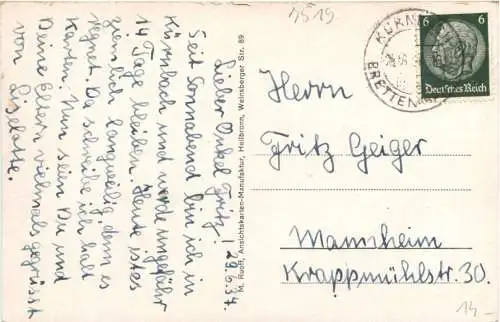 4519
Lieber Onkel Fritz! 29.6.34.
Seit Sonnabend bin ich in
Kürnbach und werde ungefähr
14 Tage bleiben. Heute ist es
ziemlich langweilig denn es
regnet. Da schreibe ich halt
Karten. Nun sein Du und
Deine Eltern vielmals gegrüsst
von Liselotte.
M. Ruoff, Ansichtskarten-Manufaktur, Heilbronn, Weinsberger Str. 89
KÜRN
BRETTEN
6 6
Deutsches Reich
Herrn
Fritz Geiger
Mannheim
Krappmühlstr. 30.
14.-